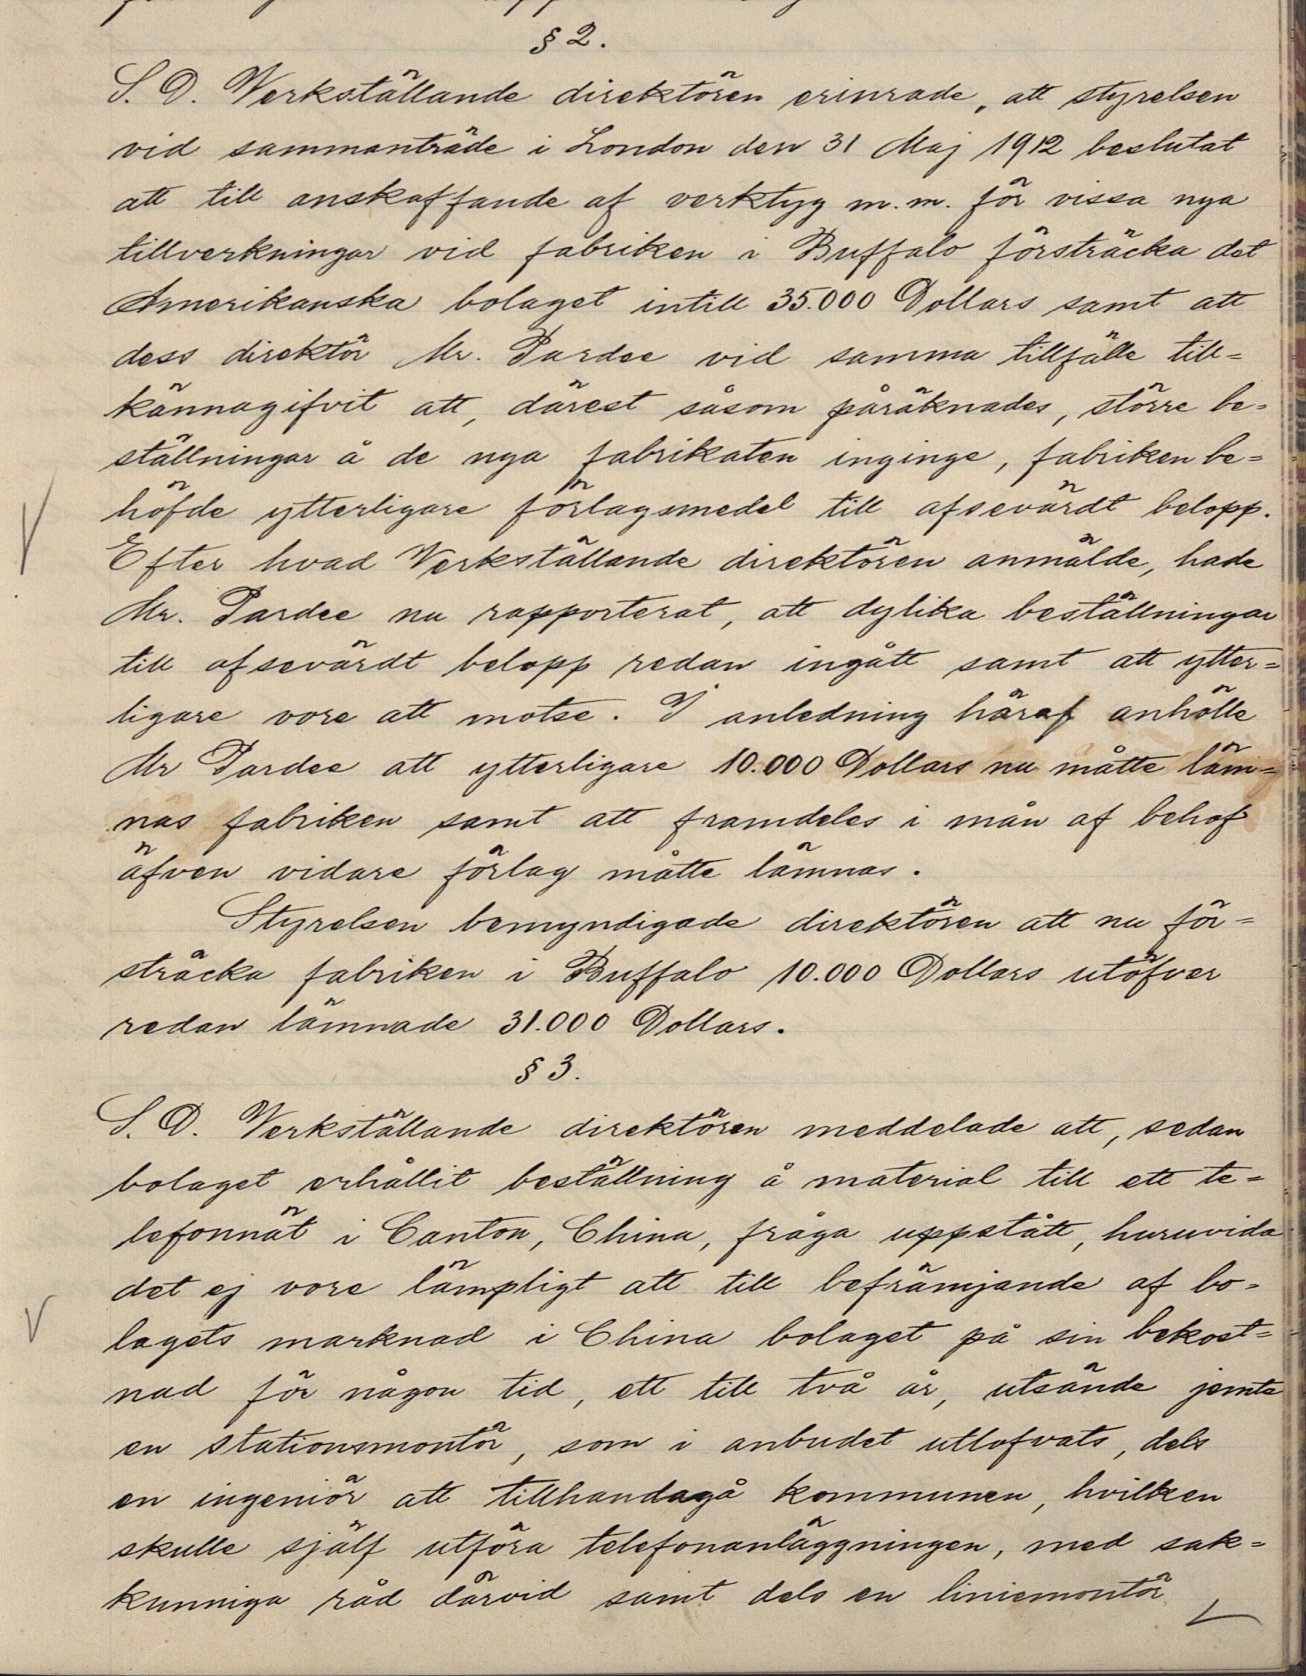 § 2.
S. D. Verkställande direktören erinrade, att styrelsen
vid sammanträde i London den 31 Maj 1912 beslutat
att till anskaffande af verktyg m.m. för vissa nya
tillverkningar vid fabriken i Buffalo försträcka det
Amerikanska bolaget intill 35.000 Dollars samt att
dess direktör Mr. Pardee vid samma tillfälle till=
kännagifvit att, därest såsom påräknades, större be=
ställningar å de nya fabrikaten inginge, fabriken be=
höfde ytterligare förlagsmedel till afsevärdt belopp.
Efter hvad Verkställande direktören anmälde, hade
Mr. Pardee nu rapporterat, att dylika beställningar
till afsevärdt belopp redan ingått samt att ytter=
ligare vore att motse. I anledning häraf anhölle
Mr Pardee att ytterligare 10.000 Dollars nu måtte läm=
nas fabriken samt att framdeles i mån af behof
äfven vidare förlag måtte lämnas.
Styrelsen bemyndigade direktören att nu för=
sträcka fabriken i Buffalo 10.000 Dollars utöfver
redan lämnade 31.000 Dollars.
§ 3.
S. D. Verkställande direktören meddelade att, sedan
bolaget erhållit beställning å material till ett te=
lefonnät i Canton, China, fråga uppstått, huruvida
det ej vore lämpligt att till befrämjande af bo=
lagets marknad i China bolaget på sin bekost=
nad för någon tid, ett till två år, utsände jemte
en stationsmontör, som i anbudet utlofvats, dels
en ingeniör att tillhandagå kommunen, hvilken
skulle själf utföra telefonanläggningen, med sak=
kunniga råd därvid samt dels en liniemontör